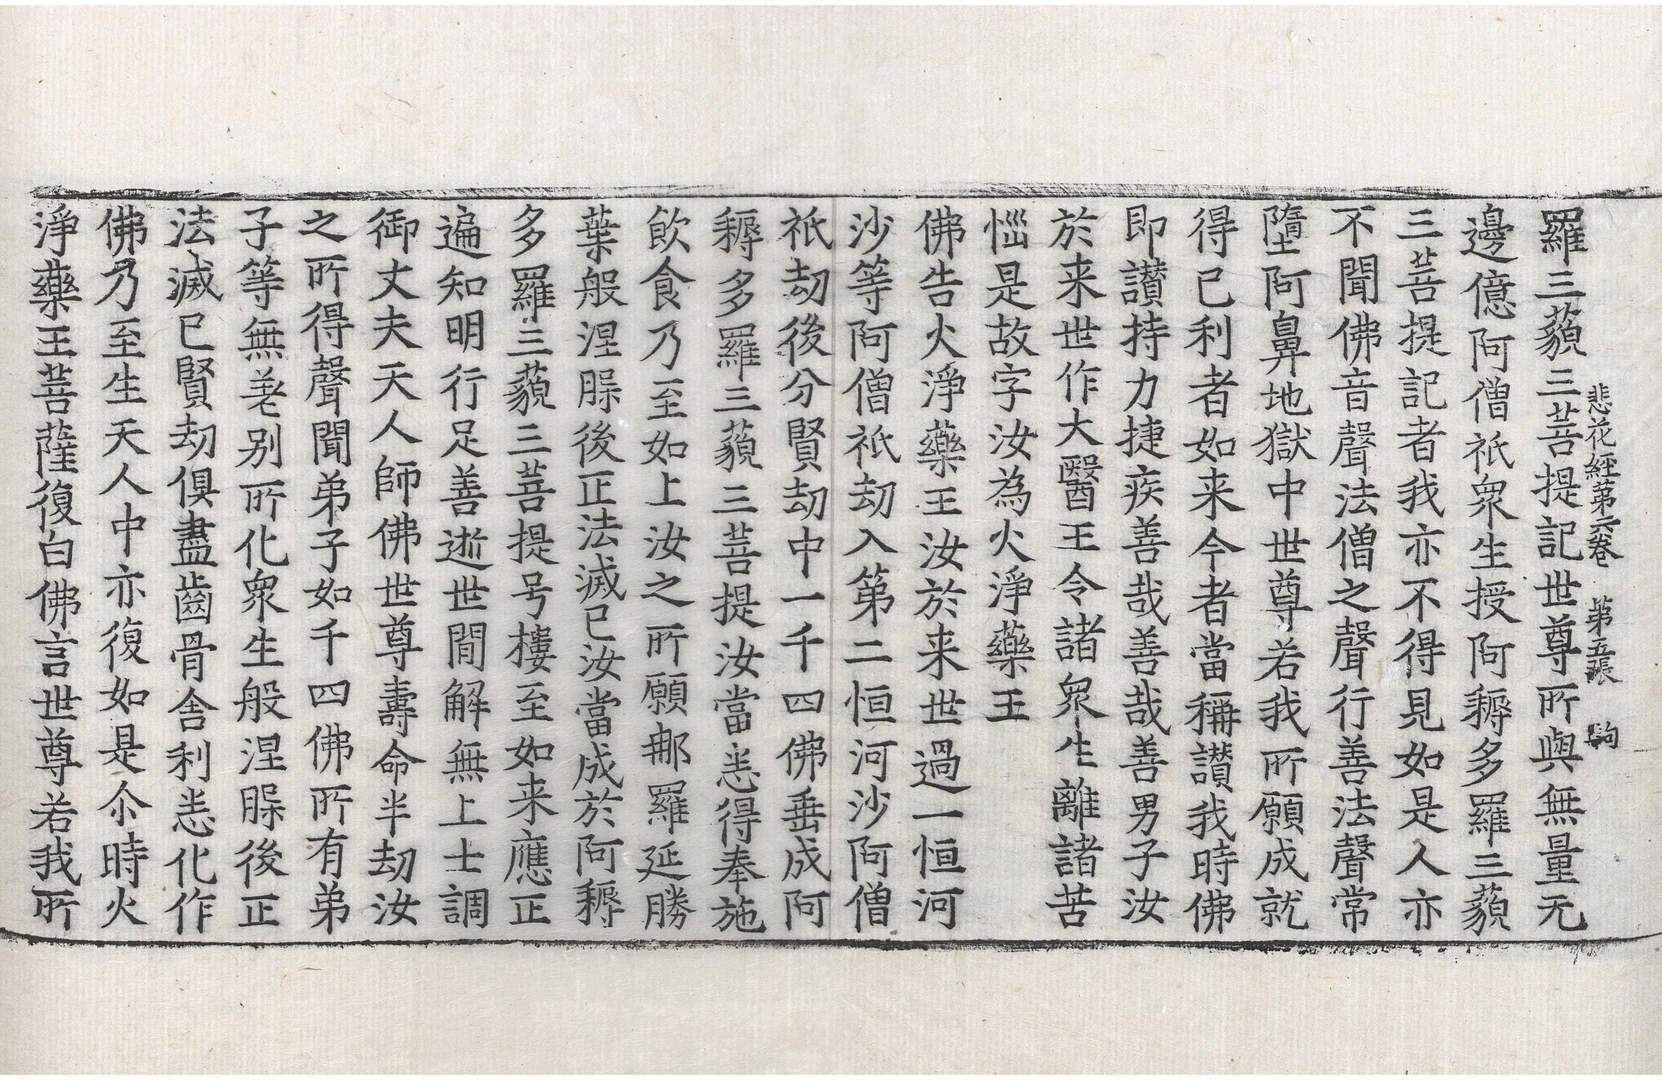 羅三藐三菩提記世尊所與無量无
悲花經第六卷 第五張 駒
邊億阿僧祇衆生授阿耨多羅三藐
三菩提記者我亦不得見如是人亦
不聞佛音聲法僧之聲行善法聲常
墮阿鼻地獄中世尊若我所願成就
得已利者如来今者當稱讃我時佛
即讃持力捷疾善哉善哉善男子汝
於来世作大醫王令諸衆生離諸苦
惱是故字汝為火淨藥王
佛告火淨藥王汝於来世過一恒河
沙等阿僧祇劫入第二恒河沙阿僧
祇劫後分賢劫中一千四佛垂成阿
耨多羅三藐三菩提汝當悉得奉施
飲食乃至如上汝之所願那羅延勝
葉般涅槃後正法滅已汝當成於阿耨
多羅三藐三菩提号樓至如来應正
遍知明行足善逝世間解無上士調
御丈夫天人師佛世尊壽命半劫汝
之所得聲聞弟子如千四佛所有弟
子等無差别所化衆生般涅槃後正
法滅已賢劫俱盡齒骨舎利悉化作
佛乃至生天人中亦復如是尒時火
淨藥王菩薩復白佛言世尊若我所